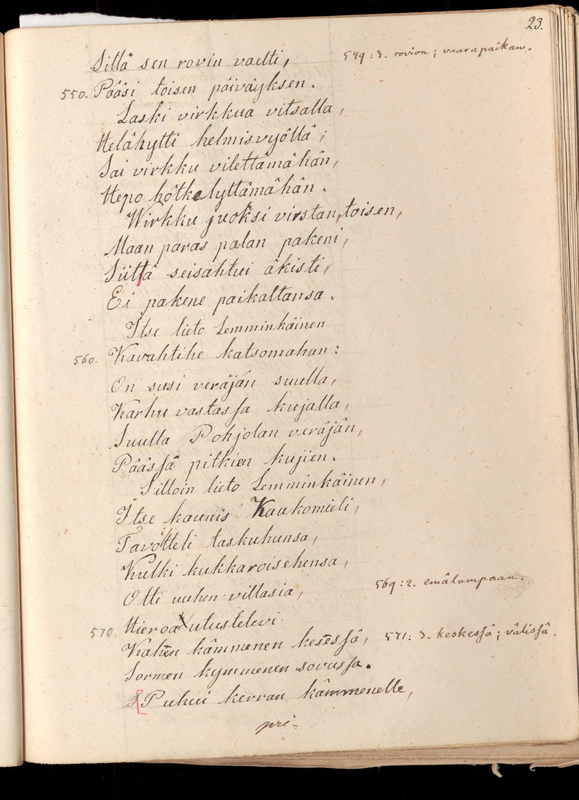 23.
Sillä sen rovin vaelti, 549: 3. rovion; vaarapaikan.
550. Pääsi toisen päiväyksen.
Laski virkkua vitsalla,
Helähytti helmisvyöllä;
Sai virkku vilettämähän,
Hepo hötkelyttämähän.
Wirkku juoksi virstan, toisen,
Maan paras palan pakeni,
Siittä seisahtui äkisti,
Ei pakene paikaltansa.
Itse lieto Lemminkäinen
560. Kavahtihe katsomahan:
On susi veräjän suulla,
Karhu vastassa kujalla,
Suulla Pohjolan veräjän,
Päässä pitkien kujien.
Silloin lieto Lemminkäinen,
Itse kaunis Kaukomieli,
Tavotteli taskuhunsa,
Kulki kukkaroisehensa,
Otti uuhen villasia, 569: 2. emälampaan.
570. Hieroa utustelevi
Kahen kämmenen kesessä, 571: 3. keskessä; välissä.
Sormen kymmenen sovussa.
Puhui kerran kämmenelle,
pri-